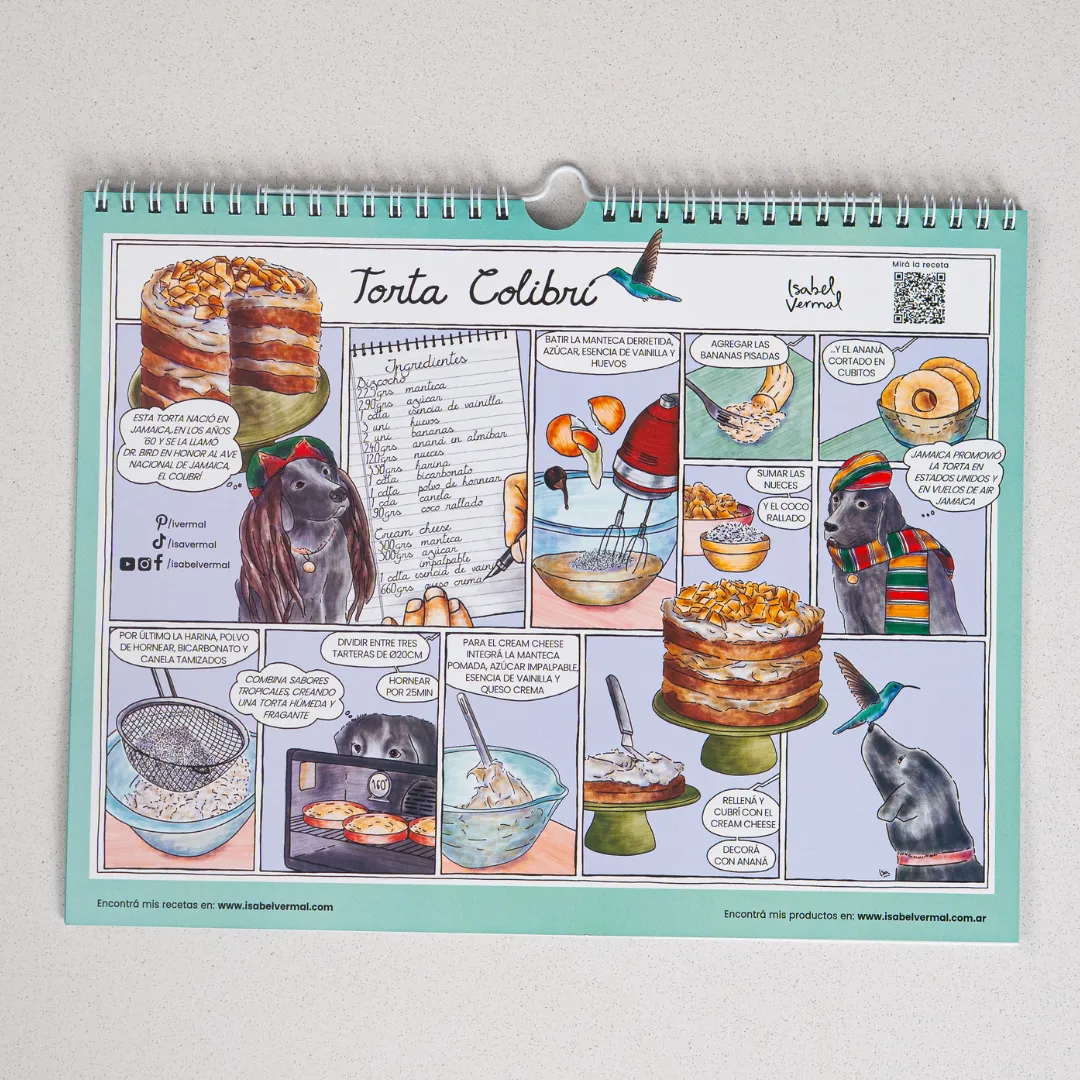 Torta Colibrí
Isabel
Vermal
Mirá la receta
ESTA TORTA NACIÓ EN
JAMAICA, EN LOS AÑOS
'60 Y SE LA LLAMÓ
DR. BIRD EN HONOR AL AVE
NACIONAL DE JAMAICA,
EL COLIBRÍ
/ivermal
/isavermal
/isabelvermal
Ingredientes
Bizcocho
225grs manteca
290grs azúcar
1 cdta esencia de vainilla
3 uni huevos
2 uni bananas
240grs ananá en almíbar
120grs nueces
330grs harina
1 cdta bicarbonato
1 cdta polvo de hornear
1 cda canela
90grs coco rallado
Cream cheese
300grs manteca
300grs azúcar
impalpable
1 cdta esencia de vain
660grs queso crema
BATIR LA MANTECA DERRETIDA,
AZÚCAR, ESENCIA DE VAINILLA Y
HUEVOS
AGREGAR LAS
BANANAS PISADAS
...Y EL ANANÁ
CORTADO EN
CUBITOS
SUMAR LAS
NUECES
Y EL COCO
RALLADO
JAMAICA PROMOVIÓ
LA TORTA EN
ESTADOS UNIDOS Y
EN VUELOS DE AIR
JAMAICA
POR ÚLTIMO LA HARINA, POLVO
DE HORNEAR, BICARBONATO Y
CANELA TAMIZADOS
COMBINA SABORES
TROPICALES, CREANDO
UNA TORTA HÚMEDA Y
FRAGANTE
DIVIDIR ENTRE TRES
TARTERAS DE Ø20CM
HORNEAR
POR 25MIN
160°
PARA EL CREAM CHEESE
INTEGRÁ LA MANTECA
POMADA, AZÚCAR IMPALPABLE,
ESENCIA DE VAINILLA Y
QUESO CREMA
RELLENÁ Y
CUBRÍ CON EL
CREAM CHEESE
DECORÁ
CON ANANÁ
Encontrá mis recetas en: www.isabelvermal.com
Encontrá mis productos en: www.isabelvermal.com.ar